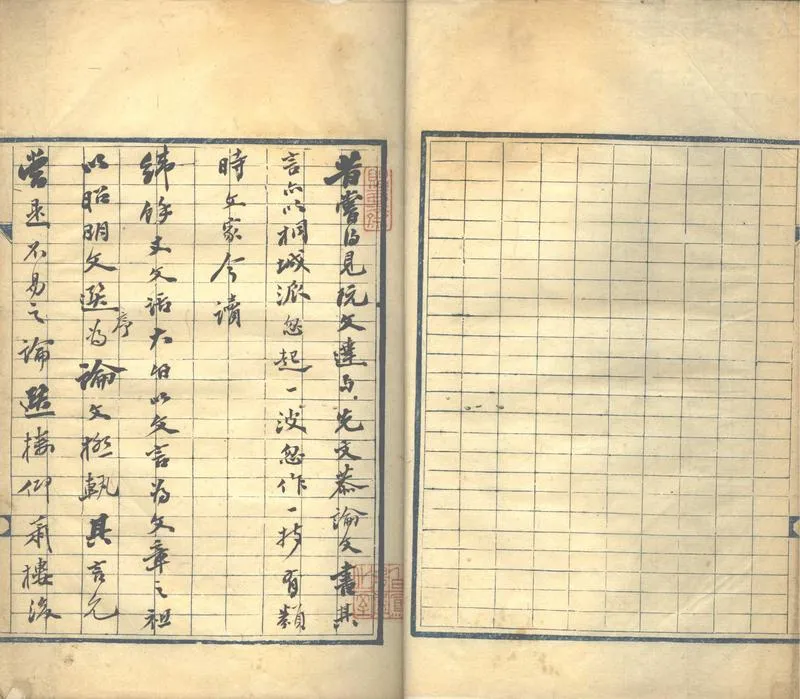 昔嘗得見阮文達與先文恭論文書其
言亦以桐城派忽起一波忽作一折有類
時文家今讀
緯餘丈文話大旨以文言為文章之祖
以昭明文選序為論文極軌其言允
當是不易之論選樓仰前樓後